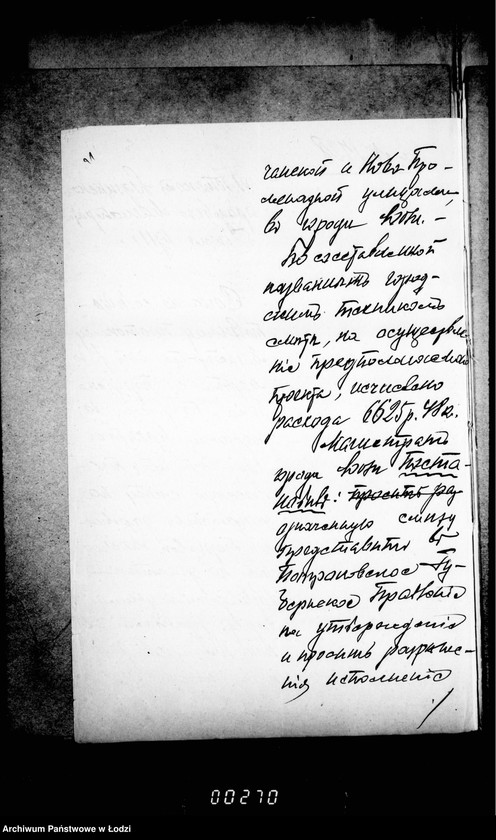 чанской и Ново Про-
менадной улицами,
въ городѣ Лодзи. -
По составленной
названнымъ город-
скимъ техникомъ
смѣтѣ, на осуществле-
ніе предположеннаго
проекта, исчислено
расхода 6625 р. 48 к.
Магистратъ
города Лодзи Поста-
новилъ: проситъ
означенную смѣту
представить въ
Петроковское Гу-
бернское Правленіе
на утвержденіе
и просить разрѣше-
нія исполненіе
00270
Archiwum Państwowe w Łodzi